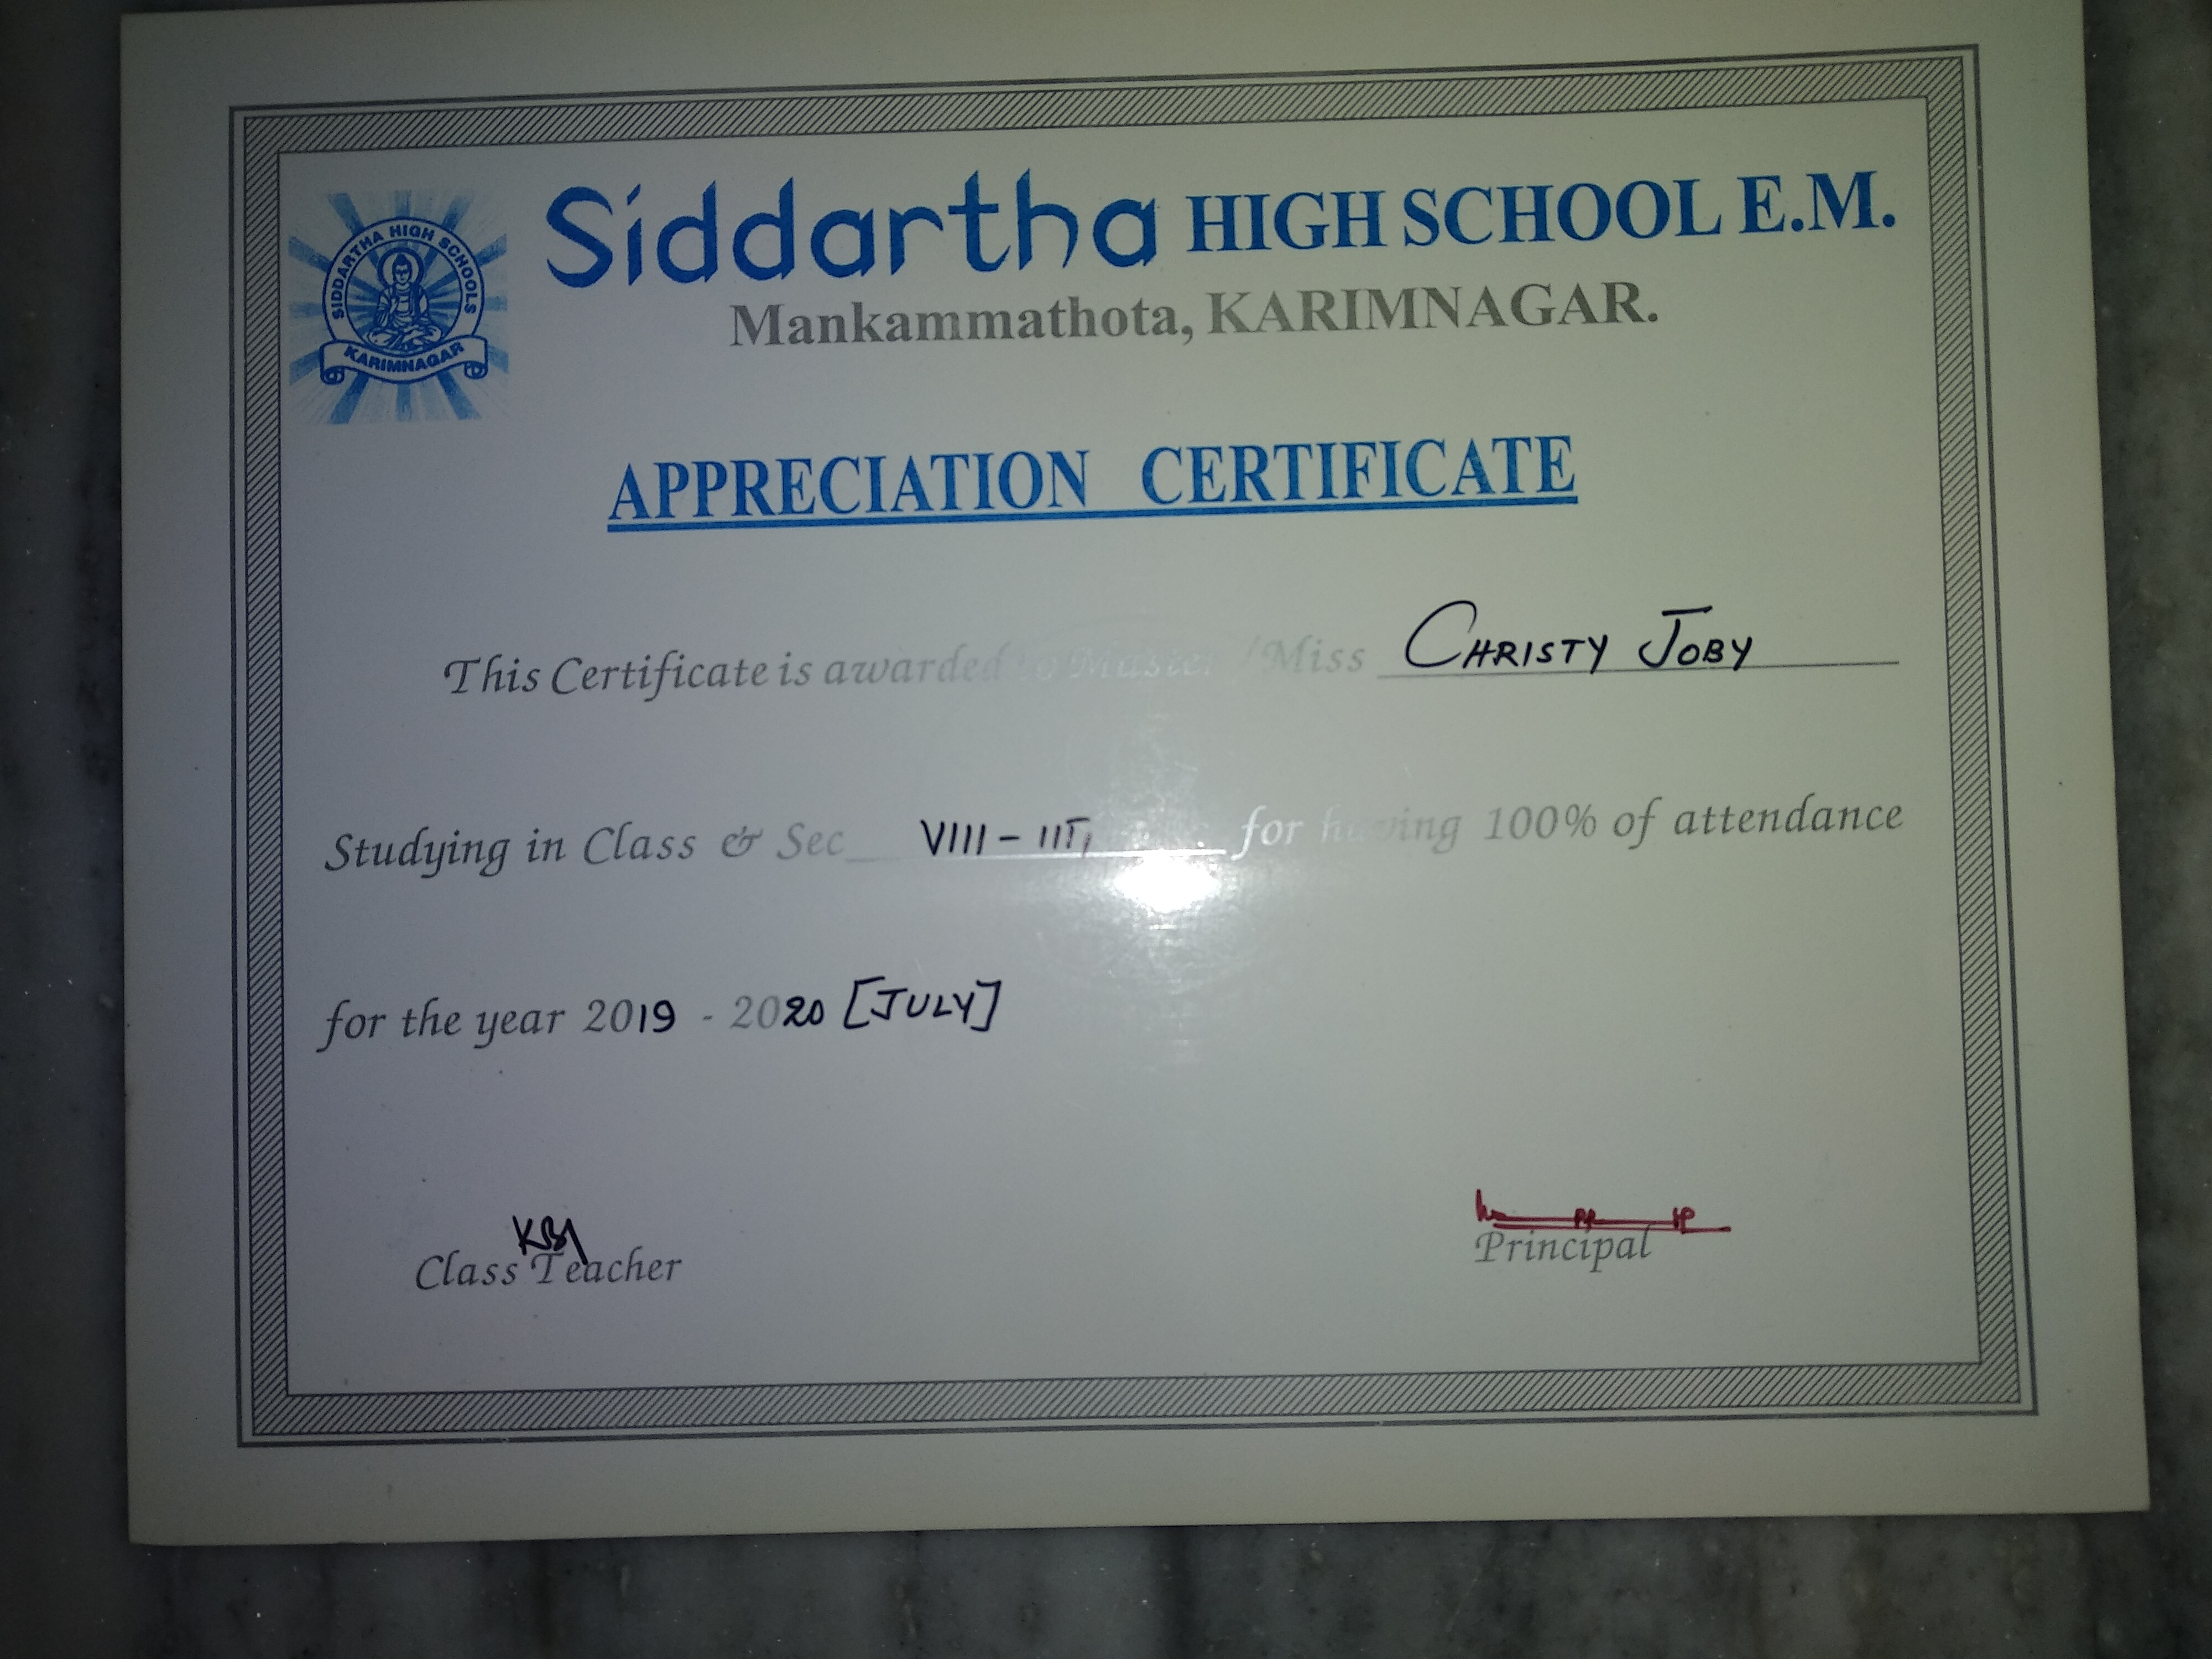 SIDDARTHA HIGH SCHOOLS
KARIMNAGAR
Siddartha HIGH SCHOOL E.M.
Mankammathota, KARIMNAGAR.
APPRECIATION CERTIFICATE
This Certificate is awarded to Master /Miss CHRISTY JOBY
Studying in Class & Sec VIII - for having 100% of attendance
for the year 2019 - 2020 [JULY]
Class Teacher
Principal